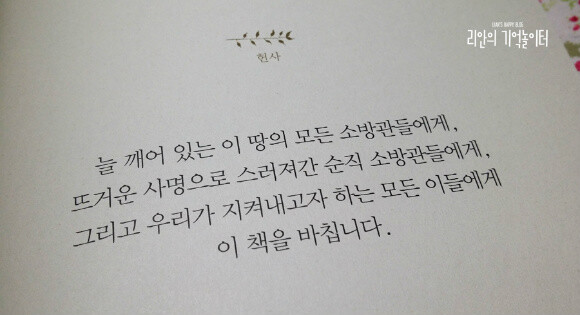 리안의 기억놀이터
헌사
늘 깨어 있는 이 땅의 모든 소방관들에게,
뜨거운 사명으로 스러져간 순직 소방관들에게,
그리고 우리가 지켜내고자 하는 모든 이들에게
이 책을 바칩니다.